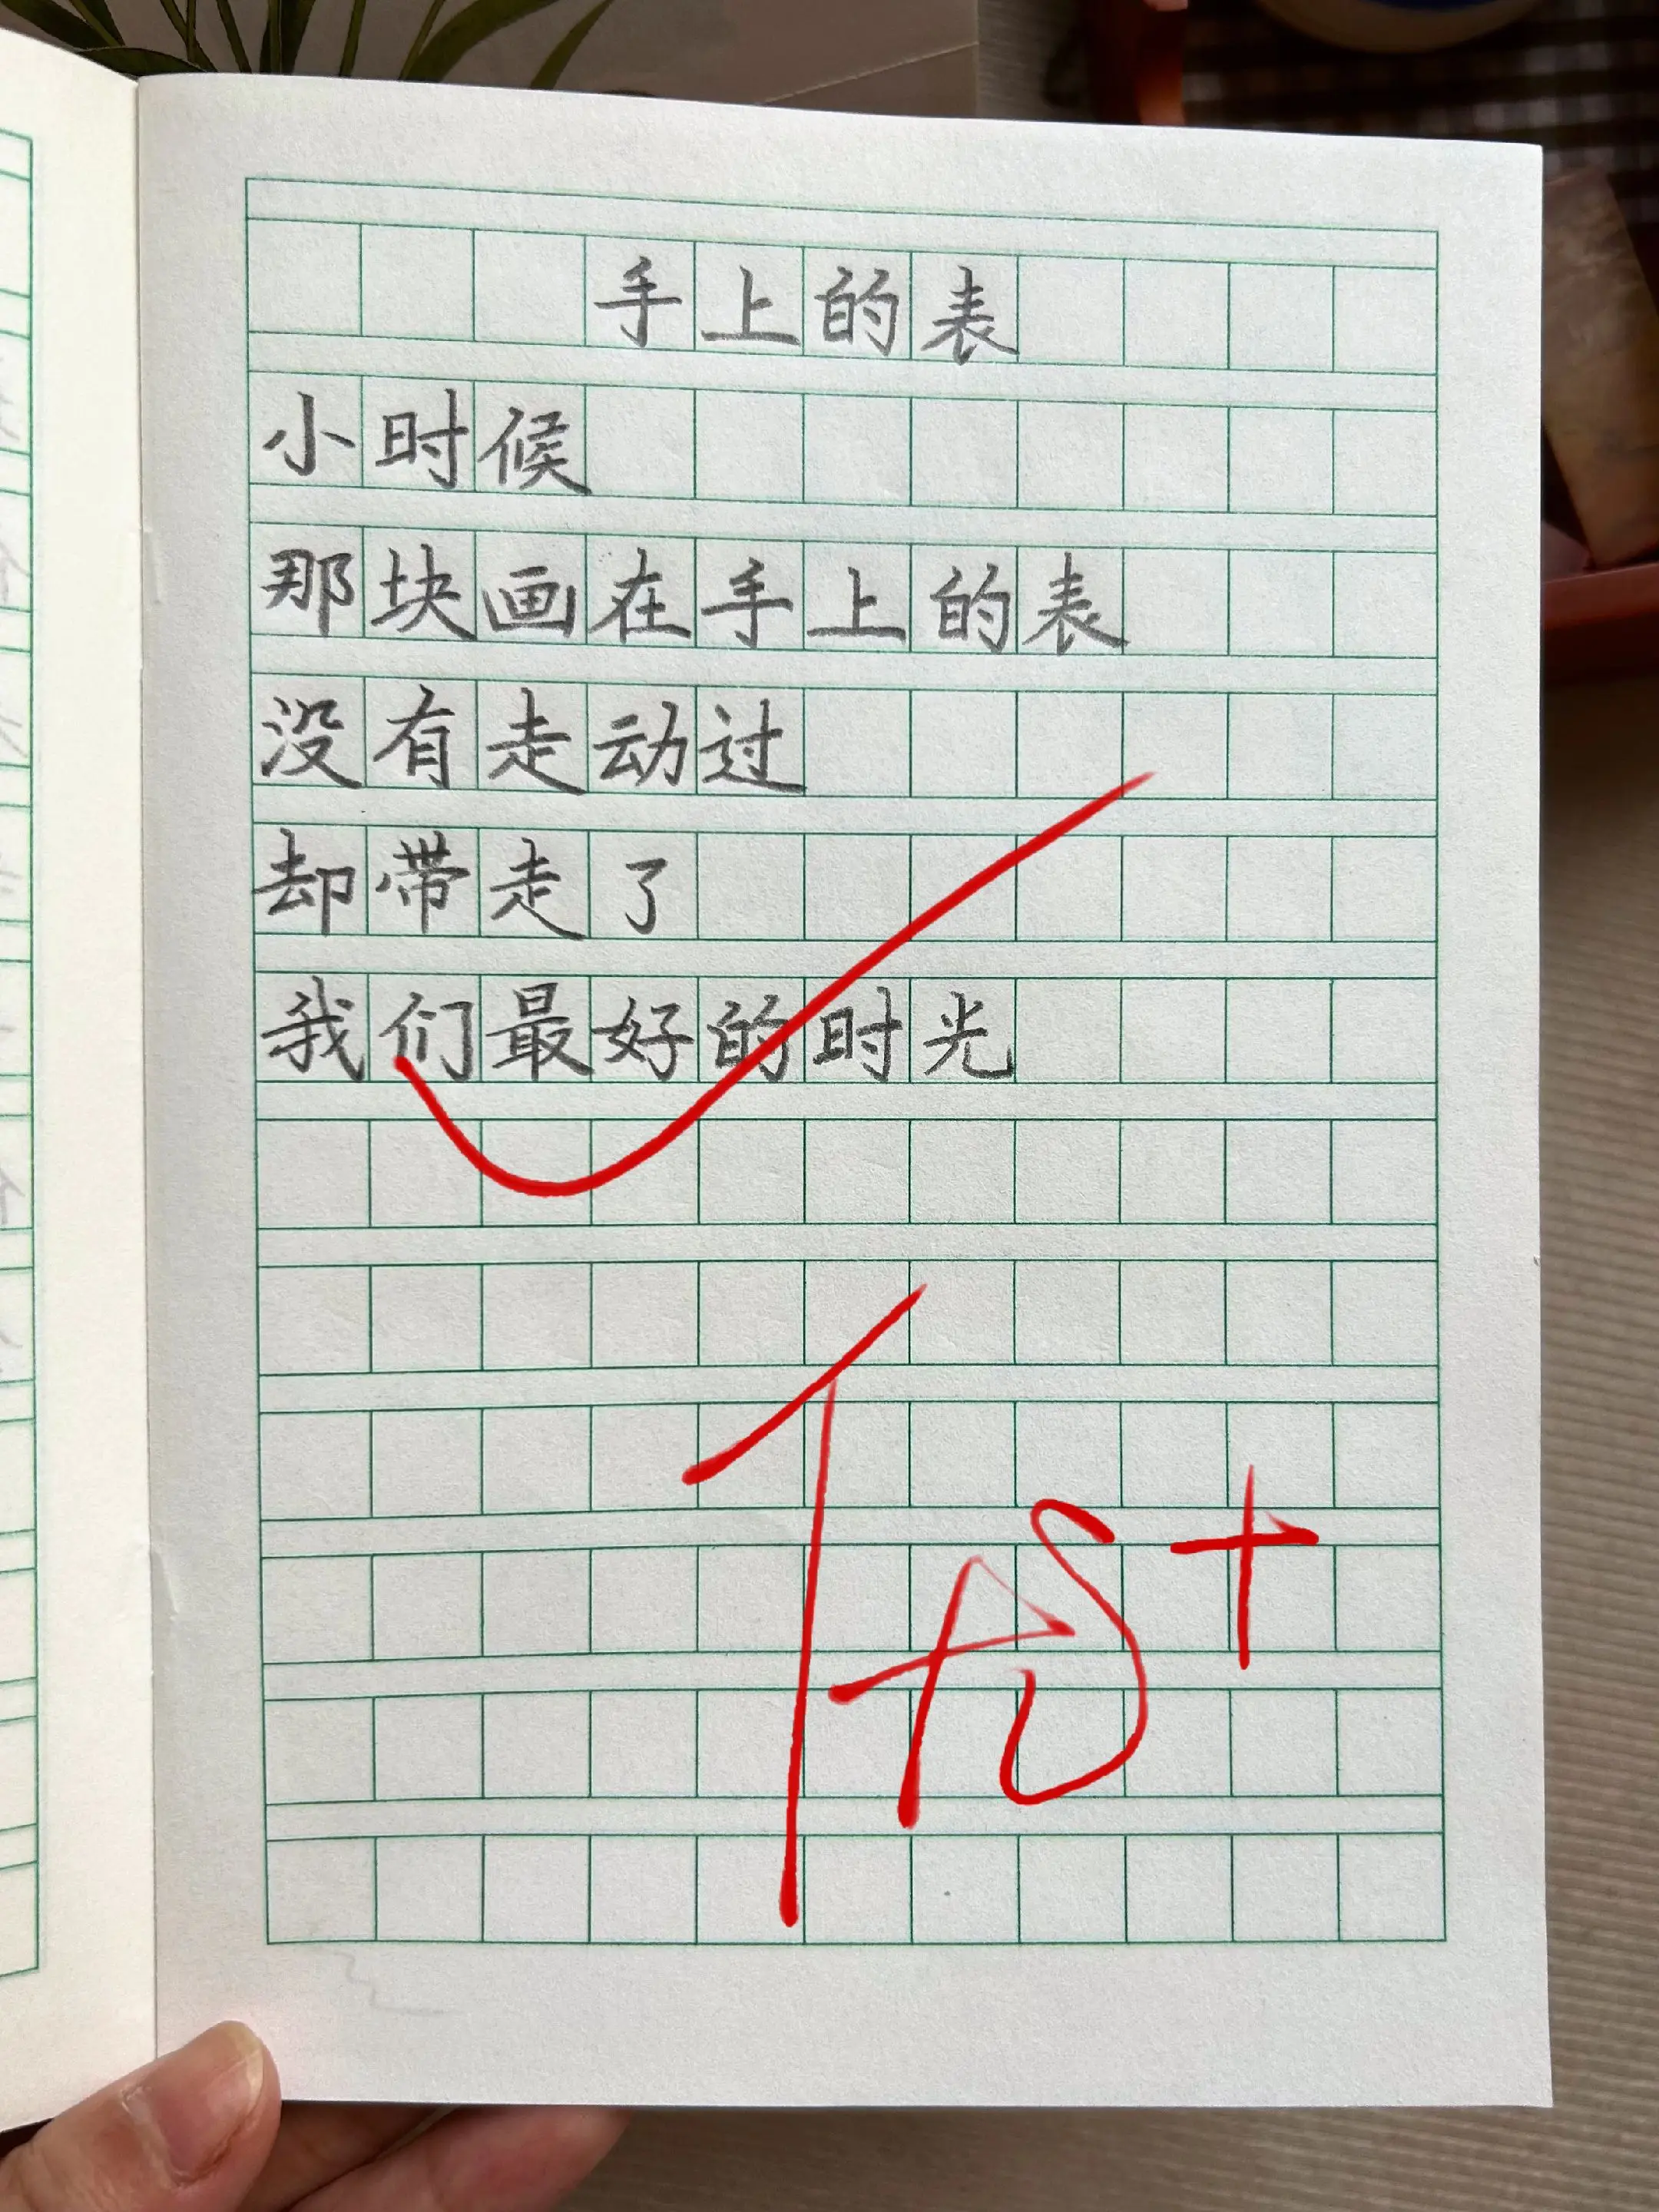 手上的表
小时候
那块画在手上的表
没有走动过
却带走了
我们最好的时光